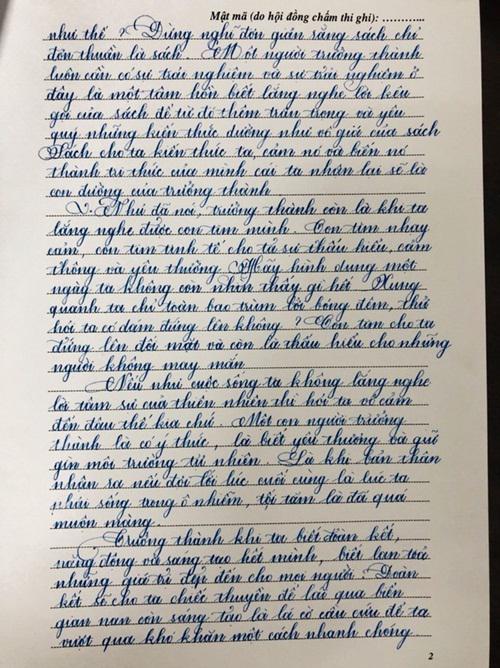 Mật mã (do hội đồng chấm thi ghi): ............
như thế ? Đừng nghĩ đơn giản rằng sách chỉ
đơn thuần là sách. Một người trưởng thành
luôn cần có sự trải nghiệm và sự trải nghiệm ở
đây là một tâm hồn biết lắng nghe lời kêu
gọi của sách để từ đó thêm trân trọng và yêu
quý những kiến thức dường như vô giá của sách
Sách cho ta kiến thức ta, cảm nó và biến nó
thành tri thức của mình cái ta nhận lại sẽ là
con đường của trưởng thành
Như đã nói, trưởng thành còn là khi ta
lắng nghe được con tim mình. Con tim nhạy
cảm, con tim tinh tế cho ta sự thấu hiểu, cảm
thông và yêu thương. Hãy hình dung một
ngày ta không còn nhìn thấy gì hết. Xung
quanh ta chỉ toàn bao trùm lời bóng đêm, thử
hỏi ta có dám đứng lên không ? Con tim cho ta
đứng lên đối mặt và còn là thấu hiểu cho những
người không may mắn.
Nếu như cuộc sống ta không lắng nghe
lời tâm sự của thiên nhiên thì hỏi ta vô cảm
đến đâu thế kia chứ. Một con người trưởng
thành là có ý thức, là biết yêu thương và giữ
gìn môi trường tự nhiên. Là khi bản thân
nhận ra nếu đợi tới lúc cuối cùng là lúc ta
phải sống trong ô nhiễm, tội tăm là đã quá
muộn màng.
Trưởng thành khi ta biết đoàn kết,
năng động và sáng tạo hết mình, biết lan toả
những giá trị đẹp đến cho mọi người. Đoàn
kết sẽ cho ta chiếc thuyền để lái qua biên
gian nan còn sáng tạo là lá cờ cầu cứu để ta
vượt qua khó khăn một cách nhanh chóng
2